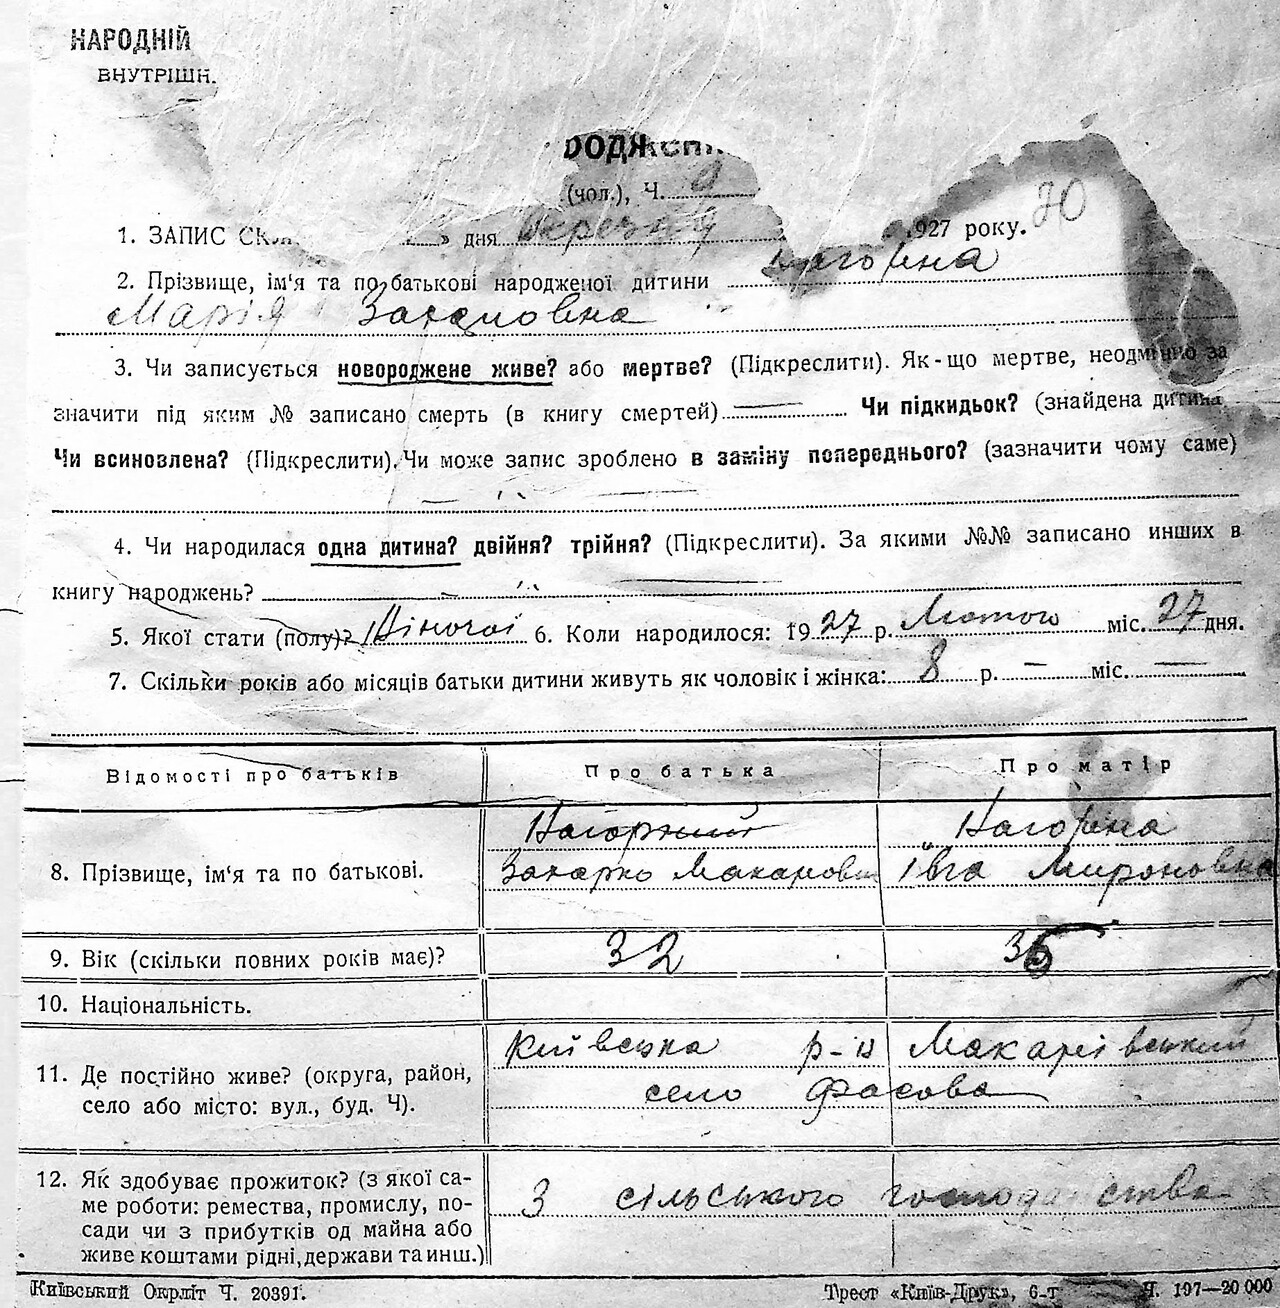 НАРОДНІЙ
ВНУТРІШН.
(чол.), Ч. 9
1. ЗАПИС » дня березня 1927 року. 70
2. Прізвище, ім'я та по батькові народженої дитини Нагорна
Марія Захаровна
3. Чи записується новороджене живе? або мертве? (Підкреслити). Як-що мертве, неодмінно за
значити під яким № записано смерть (в книгу смертей) — Чи підкидьок? (знайдена дитина
Чи всиновлена? (Підкреслити). Чи може запис зроблено в заміну попереднього? (зазначити чому саме)
4. Чи народилася одна дитина? двійня? трійня? (Підкреслити). За якими №№ записано инших в
книгу народжень?
5. Якої стати (полу)? Жіночої 6. Коли народилося: 1927 р. Лютого міс. 27 дня.
7. Скільки років або місяців батьки дитини живуть як чоловік і жінка: 8 р. — міс. —
Відомості про батьків Про батька Про матір
8. Прізвище, ім'я та по батькові. Нагорний Нагорна
Захарко Макарович Ївга Мироновна
9. Вік (скільки повних років має)? 32 35
10. Національність.
11. Де постійно живе? (округа, район, село або місто: вул., буд. Ч). Київська р-н Макарівський
село Фасова
12. Як здобуває прожиток? (з якої са-
ме роботи: ремества, промислу, по-
сади чи з прибутків од майна або
живе коштами рідні, держави та инш.) З сільського господарства
Київський Окрліт Ч. 20391. Трест «Київ-Друк», 6-т Ч. 197—20 000